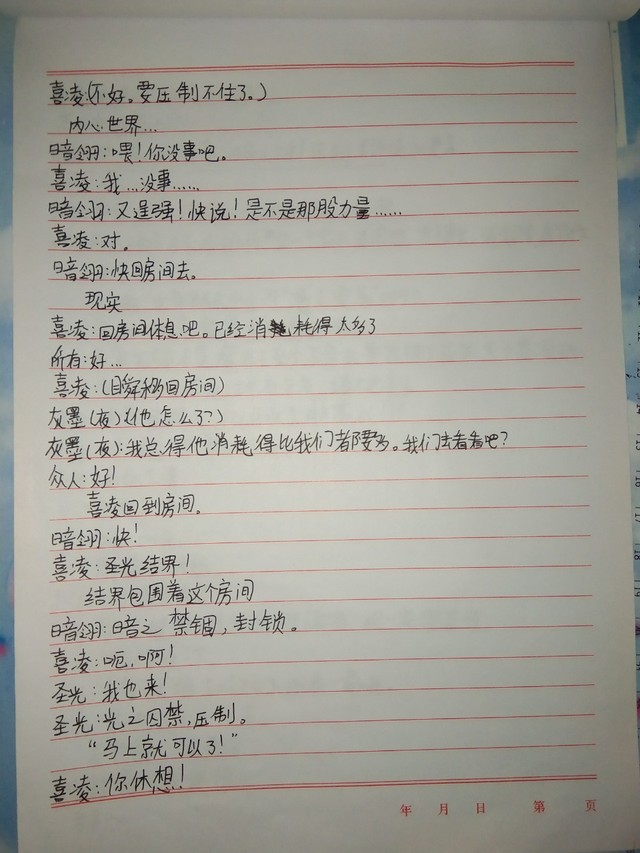 喜凌:(不好。要压制不住了。)
内心世界...
暗翎:喂!你没事吧。
喜凌:我...没事......
暗翎:又逞强!快说!是不是那股力量......
喜凌:对。
暗翎:快回房间去。
现实
喜凌:回房间休息吧。已经消耗得太多了
所有:好...
喜凌:(瞬移回房间)
灰墨(夜):(他怎么了?)
灰墨(夜):我总得他消耗得比我们都要多。我们去看看吧?
众人:好!
喜凌回到房间。
暗翎:快!
喜凌:圣光结界!
结界包围着这个房间
暗翎:暗之禁锢,封锁。
喜凌:呃,啊!
圣光:我也来!
圣光:光之囚禁,压制。
“马上就可以了!”
喜凌:你休想!
年 月 日 第 页